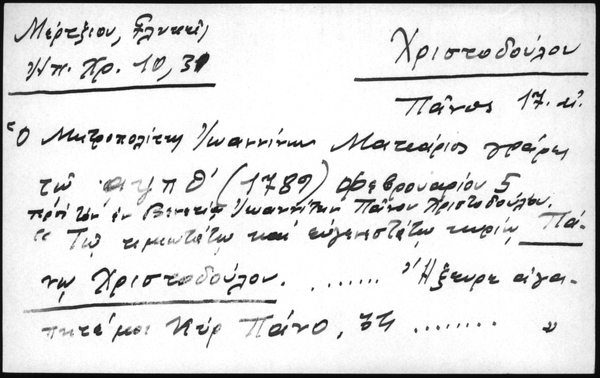 Μέρτζιου,
Ἠπ. Χρ. 10, 31
Χριστοδούλου
Πᾶνος 17. αἰ.
Ὁ Μητροπολίτης Ἰωαννίνων Μακάριος γράφει
τῷ αψπθ' (1789) Φεβρουαρίου 5
πρὸς τὸν ἐν Βενετίᾳ Ἰωαννίτην Πᾶνον Χριστοδούλου.
"Τῷ τιμιωτάτῳ καὶ εὐγενεστάτῳ κυρίῳ Πά-
νῳ Χριστοδούλου. ....... Ἤξευρε ἀγα-
πητέ μοι Κὺρ Πάνο, ........ "